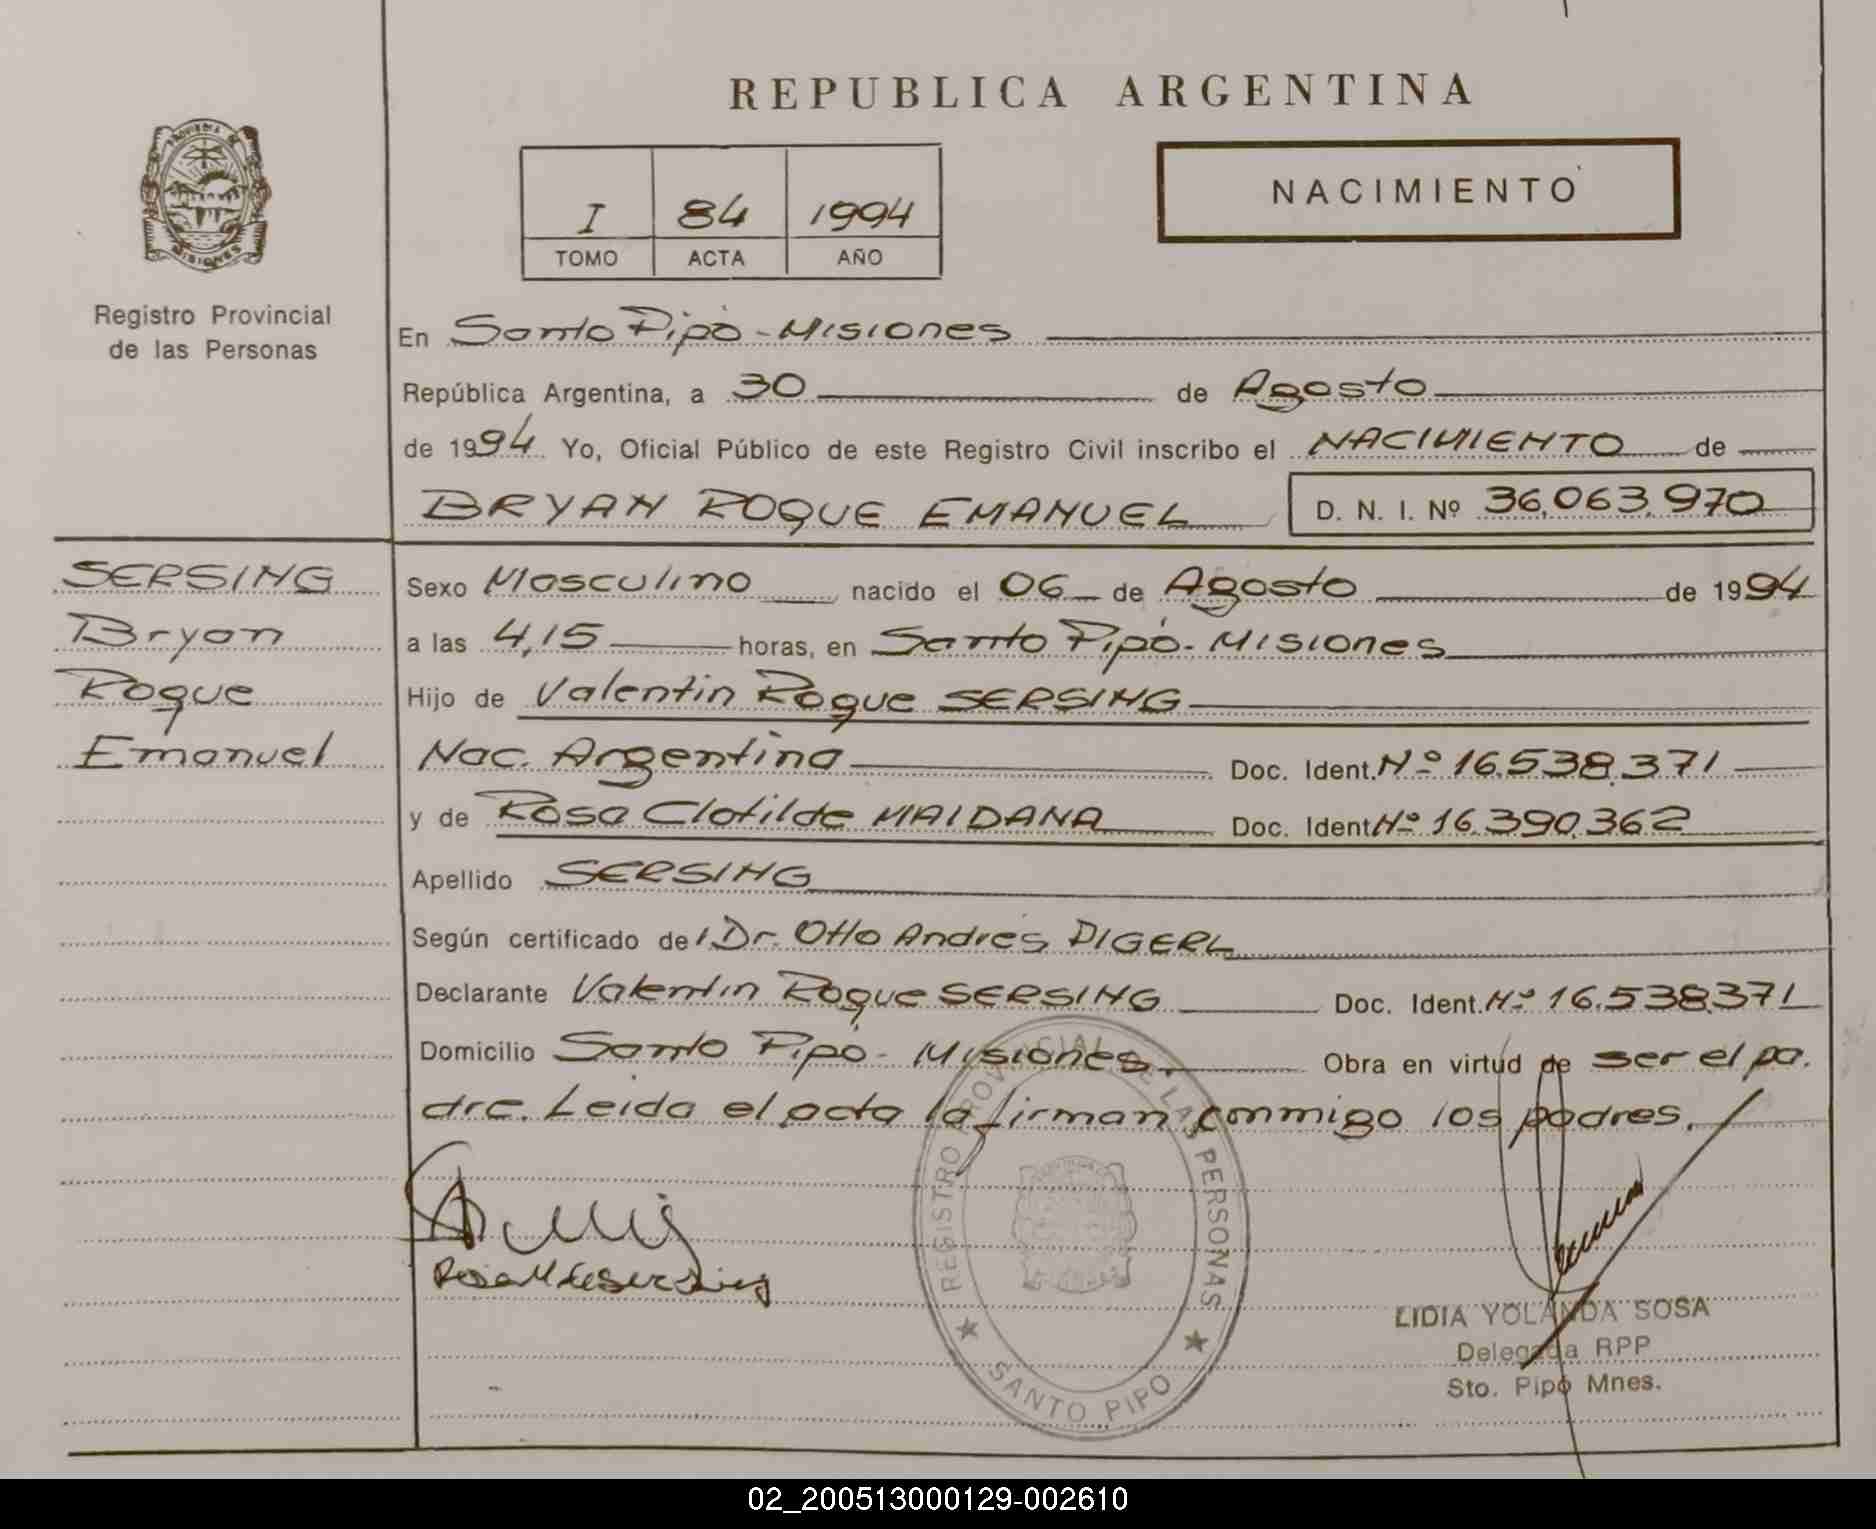 REPUBLICA ARGENTINA
PROVINCIA DE MISIONES
Registro Provincial
de las Personas
I 84 1994
TOMO ACTA AÑO
NACIMIENTO
En Santo Pipó - Misiones
República Argentina, a 30 de Agosto
de 1994 Yo, Oficial Público de este Registro Civil inscribo el NACIMIENTO de
BRYAN ROQUE EMANUEL D. N. I. Nº 36.063.970
SERSING
Bryan
Roque
Emanuel
Sexo Masculino nacido el 06 de Agosto de 1994
a las 4,15 horas, en Santo Pipó - Misiones
Hijo de Valentin Roque SERSING
Nac. Argentina Doc. Ident. Nº 16.538.371
y de Rosa Clotilde MAIDANA Doc. Ident Nº 16.390.362
Apellido SERSING
Según certificado del Dr. Otto Andrés PIGERL
Declarante Valentin Roque SERSING Doc. Ident. Nº 16.538.371
Domicilio Santo Pipó - Misiones. Obra en virtud de ser el pa.
dre. Leida el acta la firman conmigo los padres.
REGISTRO PROVINCIAL DE LAS PERSONAS
SANTO PIPO
LIDIA YOLANDA SOSA
Delegada RPP
Sto. Pipó Mnes.
02_200513000129-002610